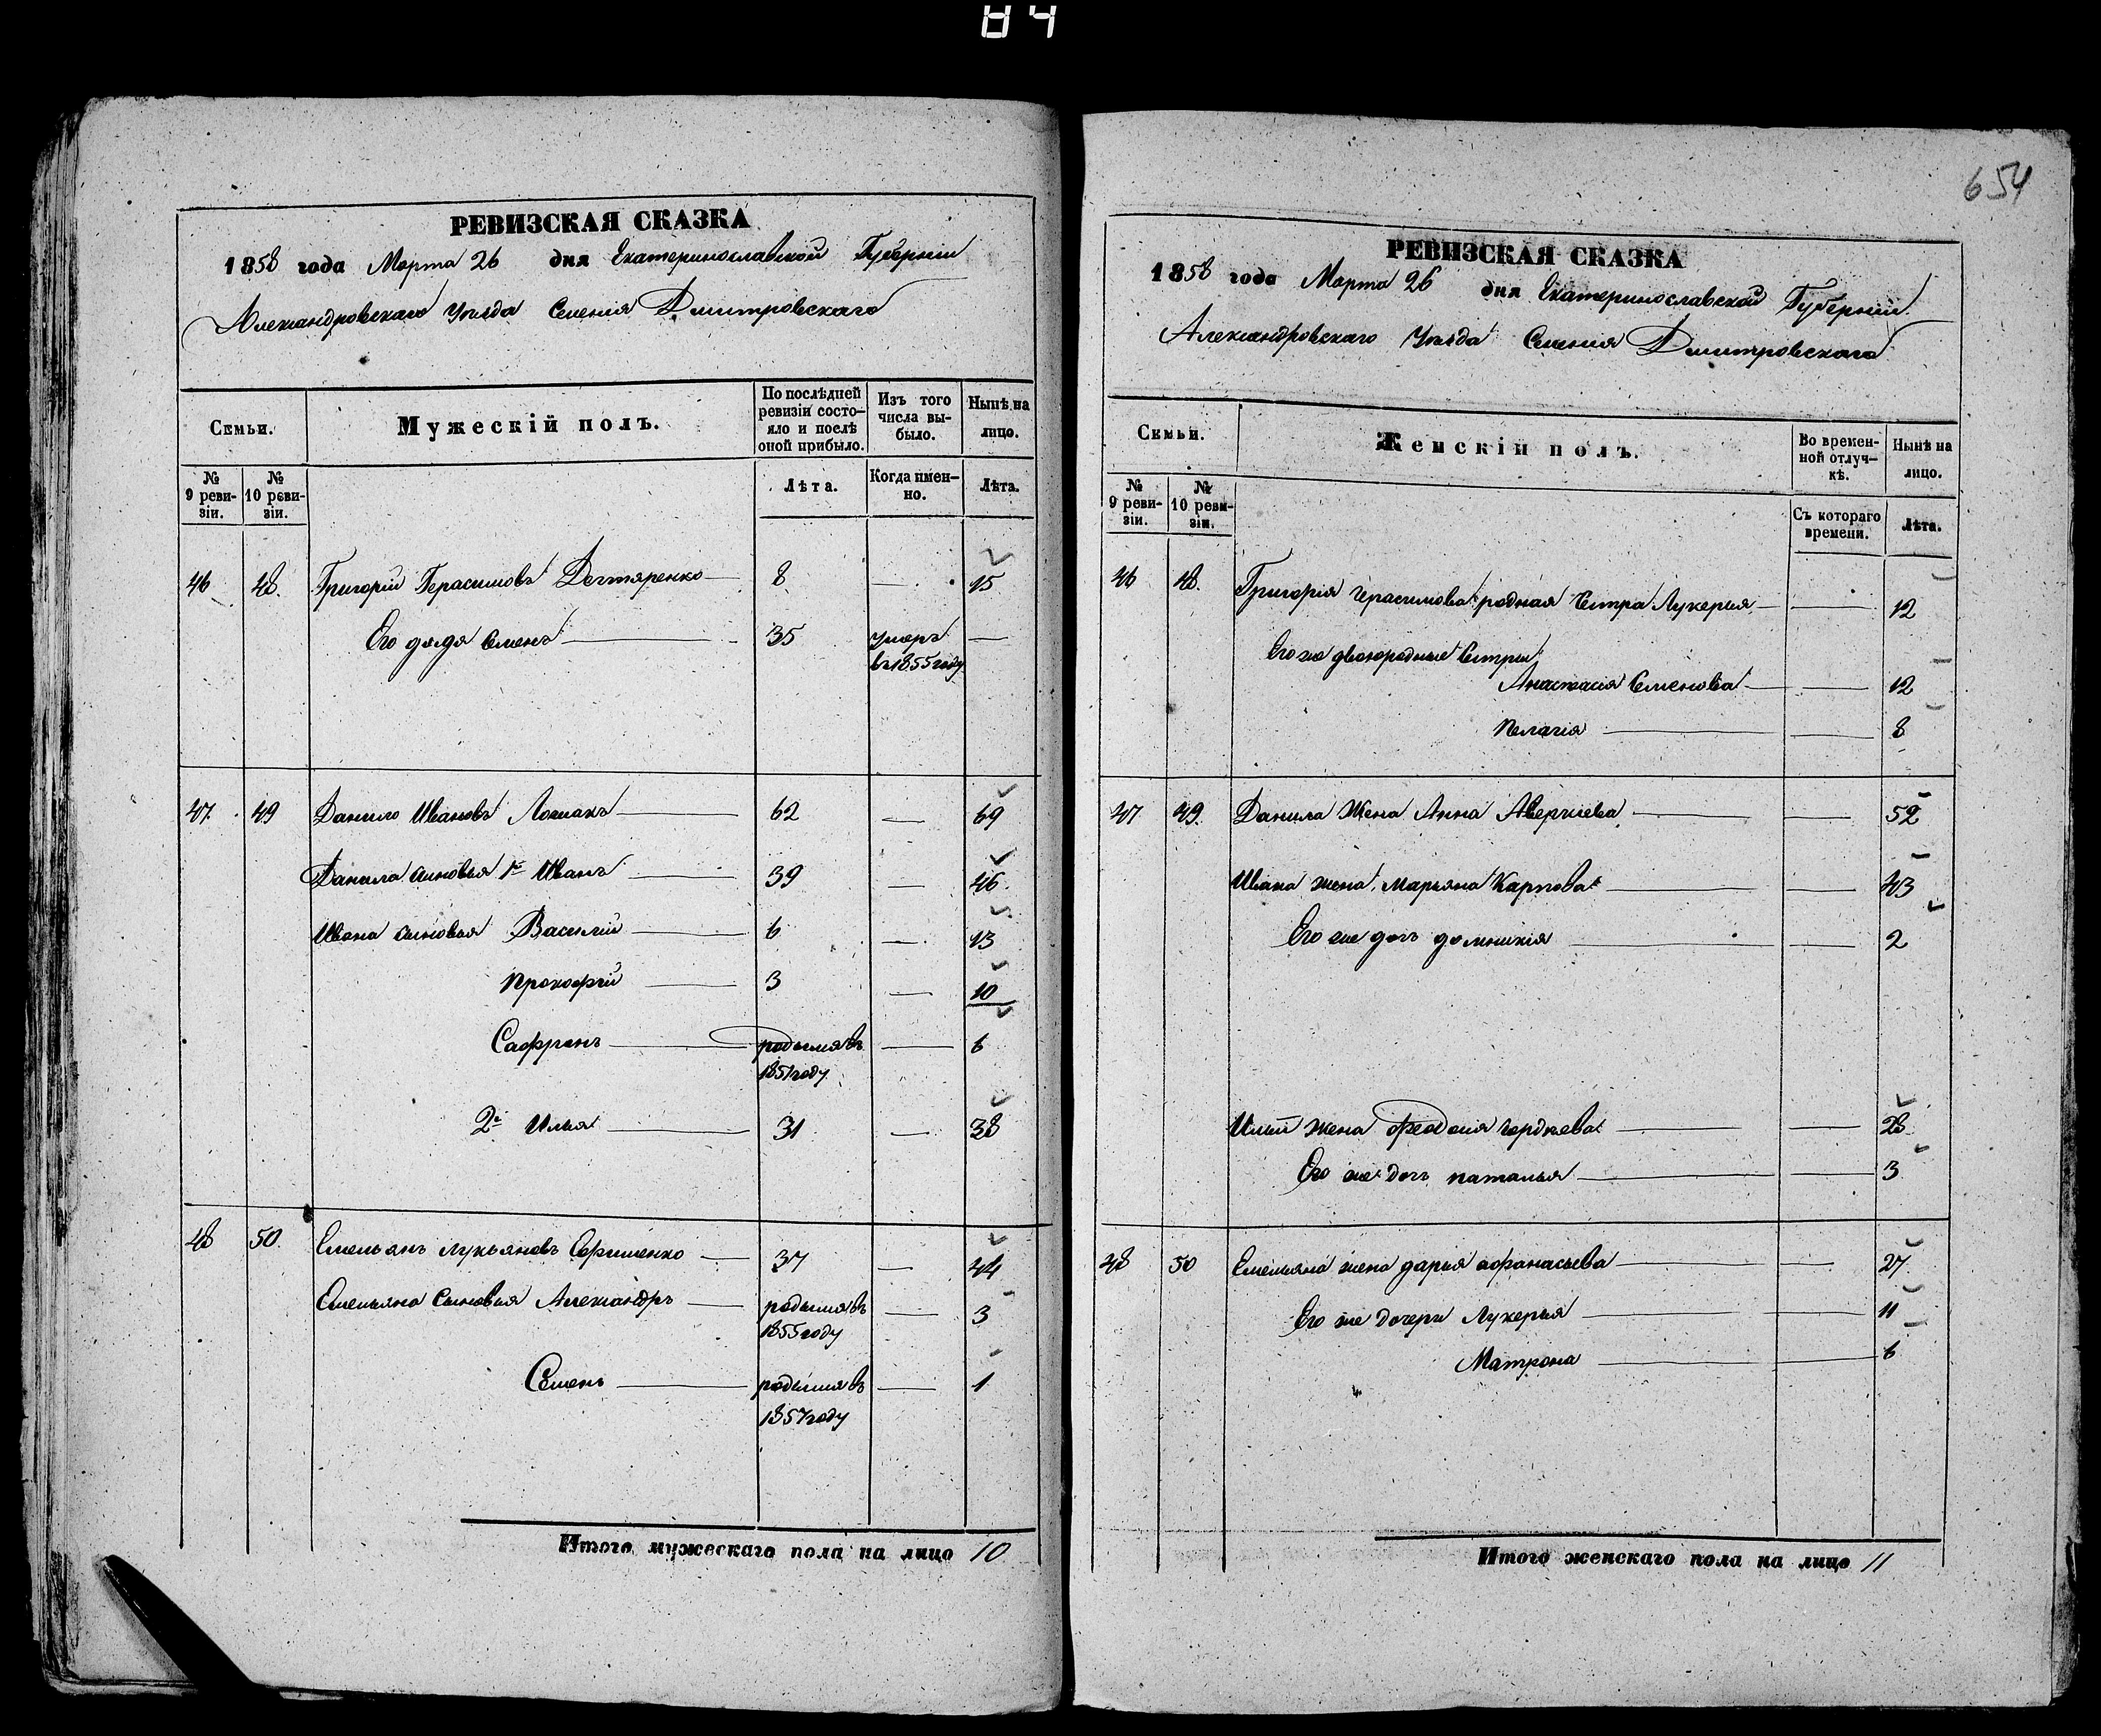 84
654
РЕВИЗСКАЯ СКАЗКА
1858 года Марта 26 дня Екатеринославской Губерніи
Александровскаго Уѣзда Селенія Дмитровскаго
Семьи.
Мужескій полъ.
По послѣдней ревизіи состо-
яло и послѣ оной прибыло.
Изъ того числа вы-
было.
Нынѣ на лицо.
№ 9 реви-
зіи.
№ 10 реви-
зіи.
Лѣта.
Когда имен-
но.
Лѣта.
46 48. Григорій Герасимовъ Дегтяренко 8 — 15
Его дядя Семенъ 35 умеръ —
въ 1855 году
47. 49 Данило Ивановъ 62 — 69
Данила сыновья 1й Иванъ 39 — 46.
Ивана сыновья Василий 6 — 13
Прокофій 3 — 10
Сафронъ родился въ — 6
1851 году
2й Илья 31 — 38
48 50. Емельянъ Лукьяновъ Ефименко 37 — 44
Емельяна Сыновья Александръ родился въ 3
1855 году
Семенъ родился въ — 1
1857 году
Итого мужескаго пола на лицо 10
РЕВИЗСКАЯ СКАЗКА
1858 года Марта 26 дня Екатеринославской Губерніи
Александровскаго Уѣзда Селенія Дмитровскаго
Семьи.
Женскій полъ.
Во времен-
ной отлуч-
кѣ.
Нынѣ на лицо.
№ 9 реви-
зіи.
№ 10 реви-
зіи.
Съ котораго времени.
Лѣта.
46 48. Григорія Герасимова родная Сестра Лукерья — 12
Его же двоюродные Сестры
Анастасія Семенова — 12
Пелагія — 8
47 49. Данила Жена Анна Аверкіева — 52
Ивана жена, Марьяна Карпова — 43
Его же дочь Домникія — 2
Ильи жена Феодосія Гордѣева — 28
Его же дочь Наталья — 3
48 50 Емельяна жена Дарья Афанасьева — 27
Его же дочери Лукерья — 11
Матрона — 6
Итого женскаго пола на лицо 11